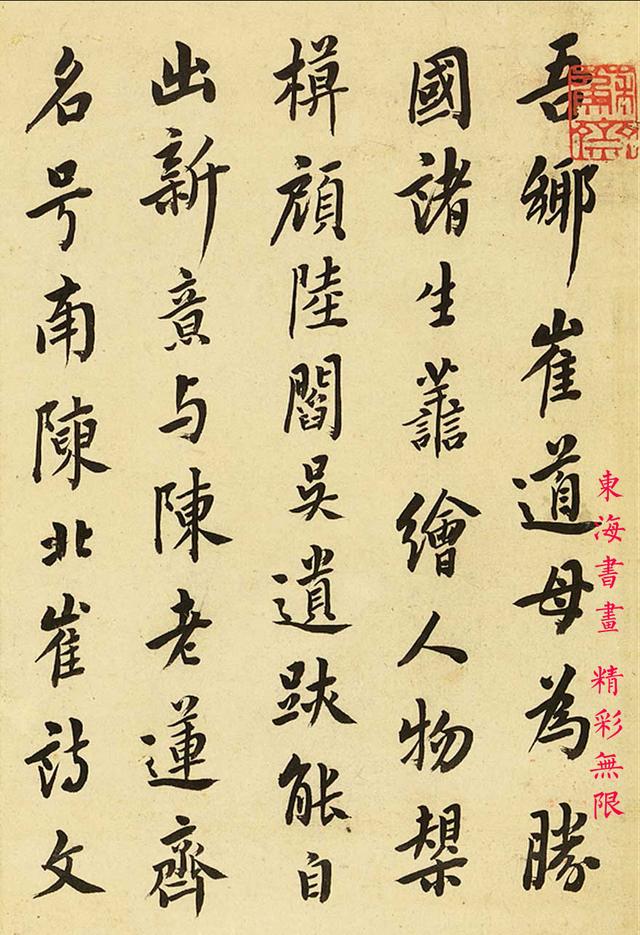 吾鄉崔道母為勝
國諸生譱繪人物槼
模顧陸閻吳遺跡能自
出新意与陳老蓮齊
名号南陳北崔詩文
東海書畫 精彩無限